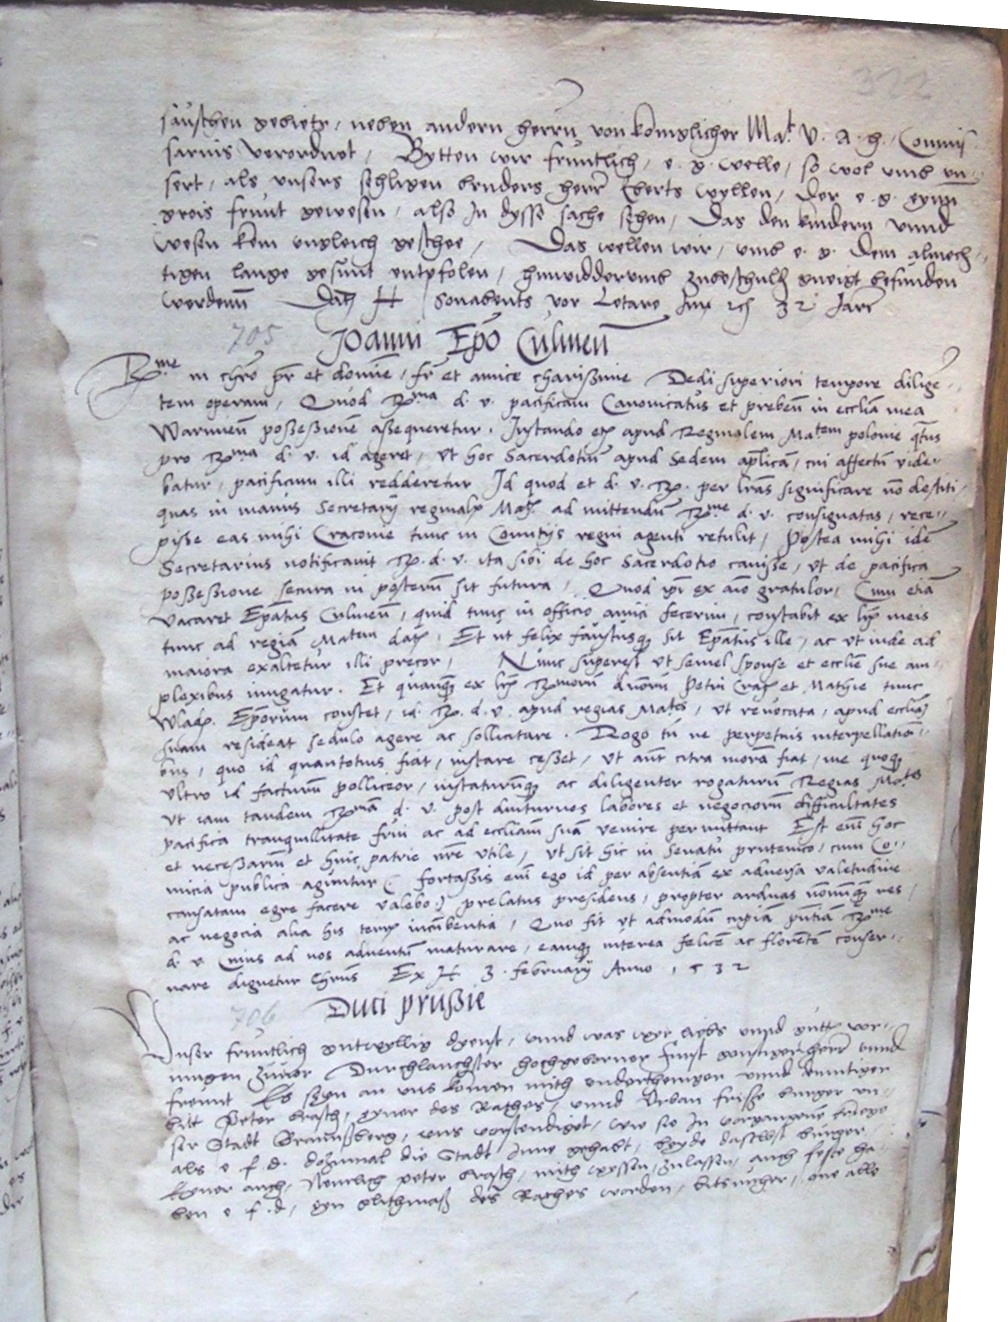 322
sauschen gebiete, neben andern herrn von koniglicher Mat. v. a. h. Commis
sarius verordnet, Bytten wir fruntlich, e. g. welle, so wol umb un-
sert, als unsers sehligen bruders herr Eberts wyllen, der e. g. gynn
grois frunt gewesen, also in dysse sache sehen, Das den kindern unnd
wesen kein ungleich geschee, Das wellen wir, umb e. g. dem almech-
tigen lange gesunt entpfolen, hinwidderumb zubeschulden gneigt befunden
werdenn Datum H Sonabents vor Letare Im 32 Jare
705 Joanni Epo Culmen
Rme in chro pr et domine, fr et amice charissime Dedi superiori tempore dilige-
tem operam, Quod Rma d. v. pacificam Canonicatus et preben in ecclia mea
Warmien possessione assequeretur. Instando apud Reginalem Matem polonie
pro Rma d. v. id ageret, ut hoc Sacerdotium apud Sedem aplica, cui affectu vide-
batur, pacificum illi redderetur Id quod et d. v. R. per lras significare no destiti
quas in manus Secretarii reginalis Matis ad mittendu Rme d. v. consignatas, rece-
pisse eas mihi Cracovie tunc in Comitiis regni agenti retulit, Postea mihi ide
Secretarius notificavit R. d. v. ita sibi de hoc Sacerdotio cavisse, ut de pacifica
possessione secura in posterum sit futura, Quod ipi ex aio gratulor, Cum etia
vacaret Epatus Culmen, quid tunc in officio amici fecerim, constabit ex lris meis
tunc ad regia Matem datis, Et ut felix faustusque sit Epatus ille, ac ut inde ad
maiora exaltetur illi precor, Nunc superest ut semel sponse et ecclie sue am-
plexibus iungatur. Et quanque ex lris Rmorum dnorum Petri Crac et Mathie tunc
Wladis. Eporum constet, id R. d. v. apud regias Mates, ut revocata, apud ecclia
suam resideat sedulo agere ac sollicitare. Rogo tn ne perpetuis interpellatio-
bus, quo id quantotius fiat, instare cesset, ut aut citra mora fiat, me quoque
ultro id facturum polliceor, instaturumque ac diligenter rogaturum Regias Mates
ut iam tandem Rma d. v. post diuturnos labores et negociorum difficultates
pacifica tranquillitate frui ac ad eccliam sua venire permittant Est eni hoc
et necessariu et huic patrie nre utile, ut sit hic in senatu prutenico, cum Co-
micia publica aguntur (fortassis eni ego id per absentia ex adversa valetudine
causatam egre facere valebo) prelatus presidens, propter arduas nonnunque res
ac negocia alia his temp incumbentia, Quo fit ut admodum cupiam pntia Rme
d. v. Cuius ad nos adventum maturare, eamque interea felice ac florente conser-
vare dignetur Chrus Ex H 3. february Anno 1532
706 Duci prussie
Unser fruntlich gutwyllig dynst, unnd was wyr liebs unnd gutts vor-
mugen zuvor Durchlauchster hochgeborner Furst gonstiger herr unnd
freunt Es seyn an uns komen mith underthenigen unnd demutiger
bitt Peter brasch, eyner des Rathes, unnd Urban frisse burger un-
ser Stadt Braunsberg, uns vorstendiget, wie sie in vorgangene kriege
als e f. d. dozumal die Stadt inne gehabt, beyde daselbst burger
keyner auch, Nemlich peter brasch, mith wyssen, zulassen, auch feste ha-
ben e f. d, eyn glithmaß des Rathes worden, bitsucher, one alle